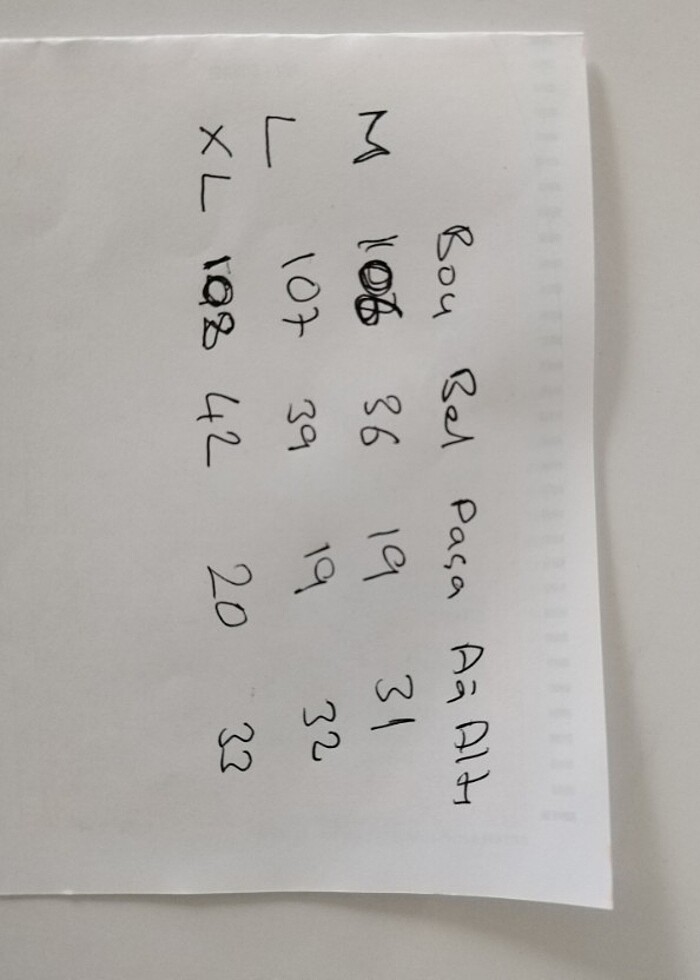 Boy Bel Paça Ağ Altı
M 106 36 19 31
L 107 39 19 32
XL 108 42 20 33